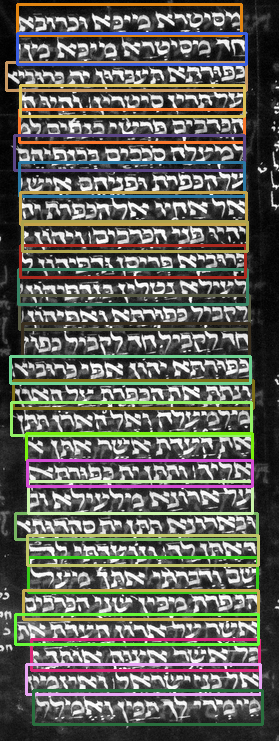 מסיטרא מיכא וכרובא
חד מסיטרא מיכא מן
כפורתא תעבדון ית כרוביא
על תרין סטרוהי והיו
הכרבים פרשי כנפים
למעלה סככים בכנפיהם
על הכפרת ופניהם איש
אל אחיו אל הכפרת יהיו
פני הכרבים ויהון
כרוביא פריסן גדפיהון
לעילא מטלין בגדפיהון
על כפורתא ואפיהון
חד לקביל חד לקביל כפו
כפורתא יהון אפי כרוביא
ונתת את הכפרת על הארן
מלמעלה ואל הארן תתן
את העדת אשר אתן
אליך ותתן ית כפורתא
על ארונא מלעילא
ובארונא תתן ית סהדותא
דאתן לך ונועדתי לך
שם ודברתי אתך מעל
הכפרת מבין שני הכרבים
אשר על ארון העדת את
כל אשר אצוה אותך
אל בני ישראל ואזמין
מימרי לך תמן ואמלל